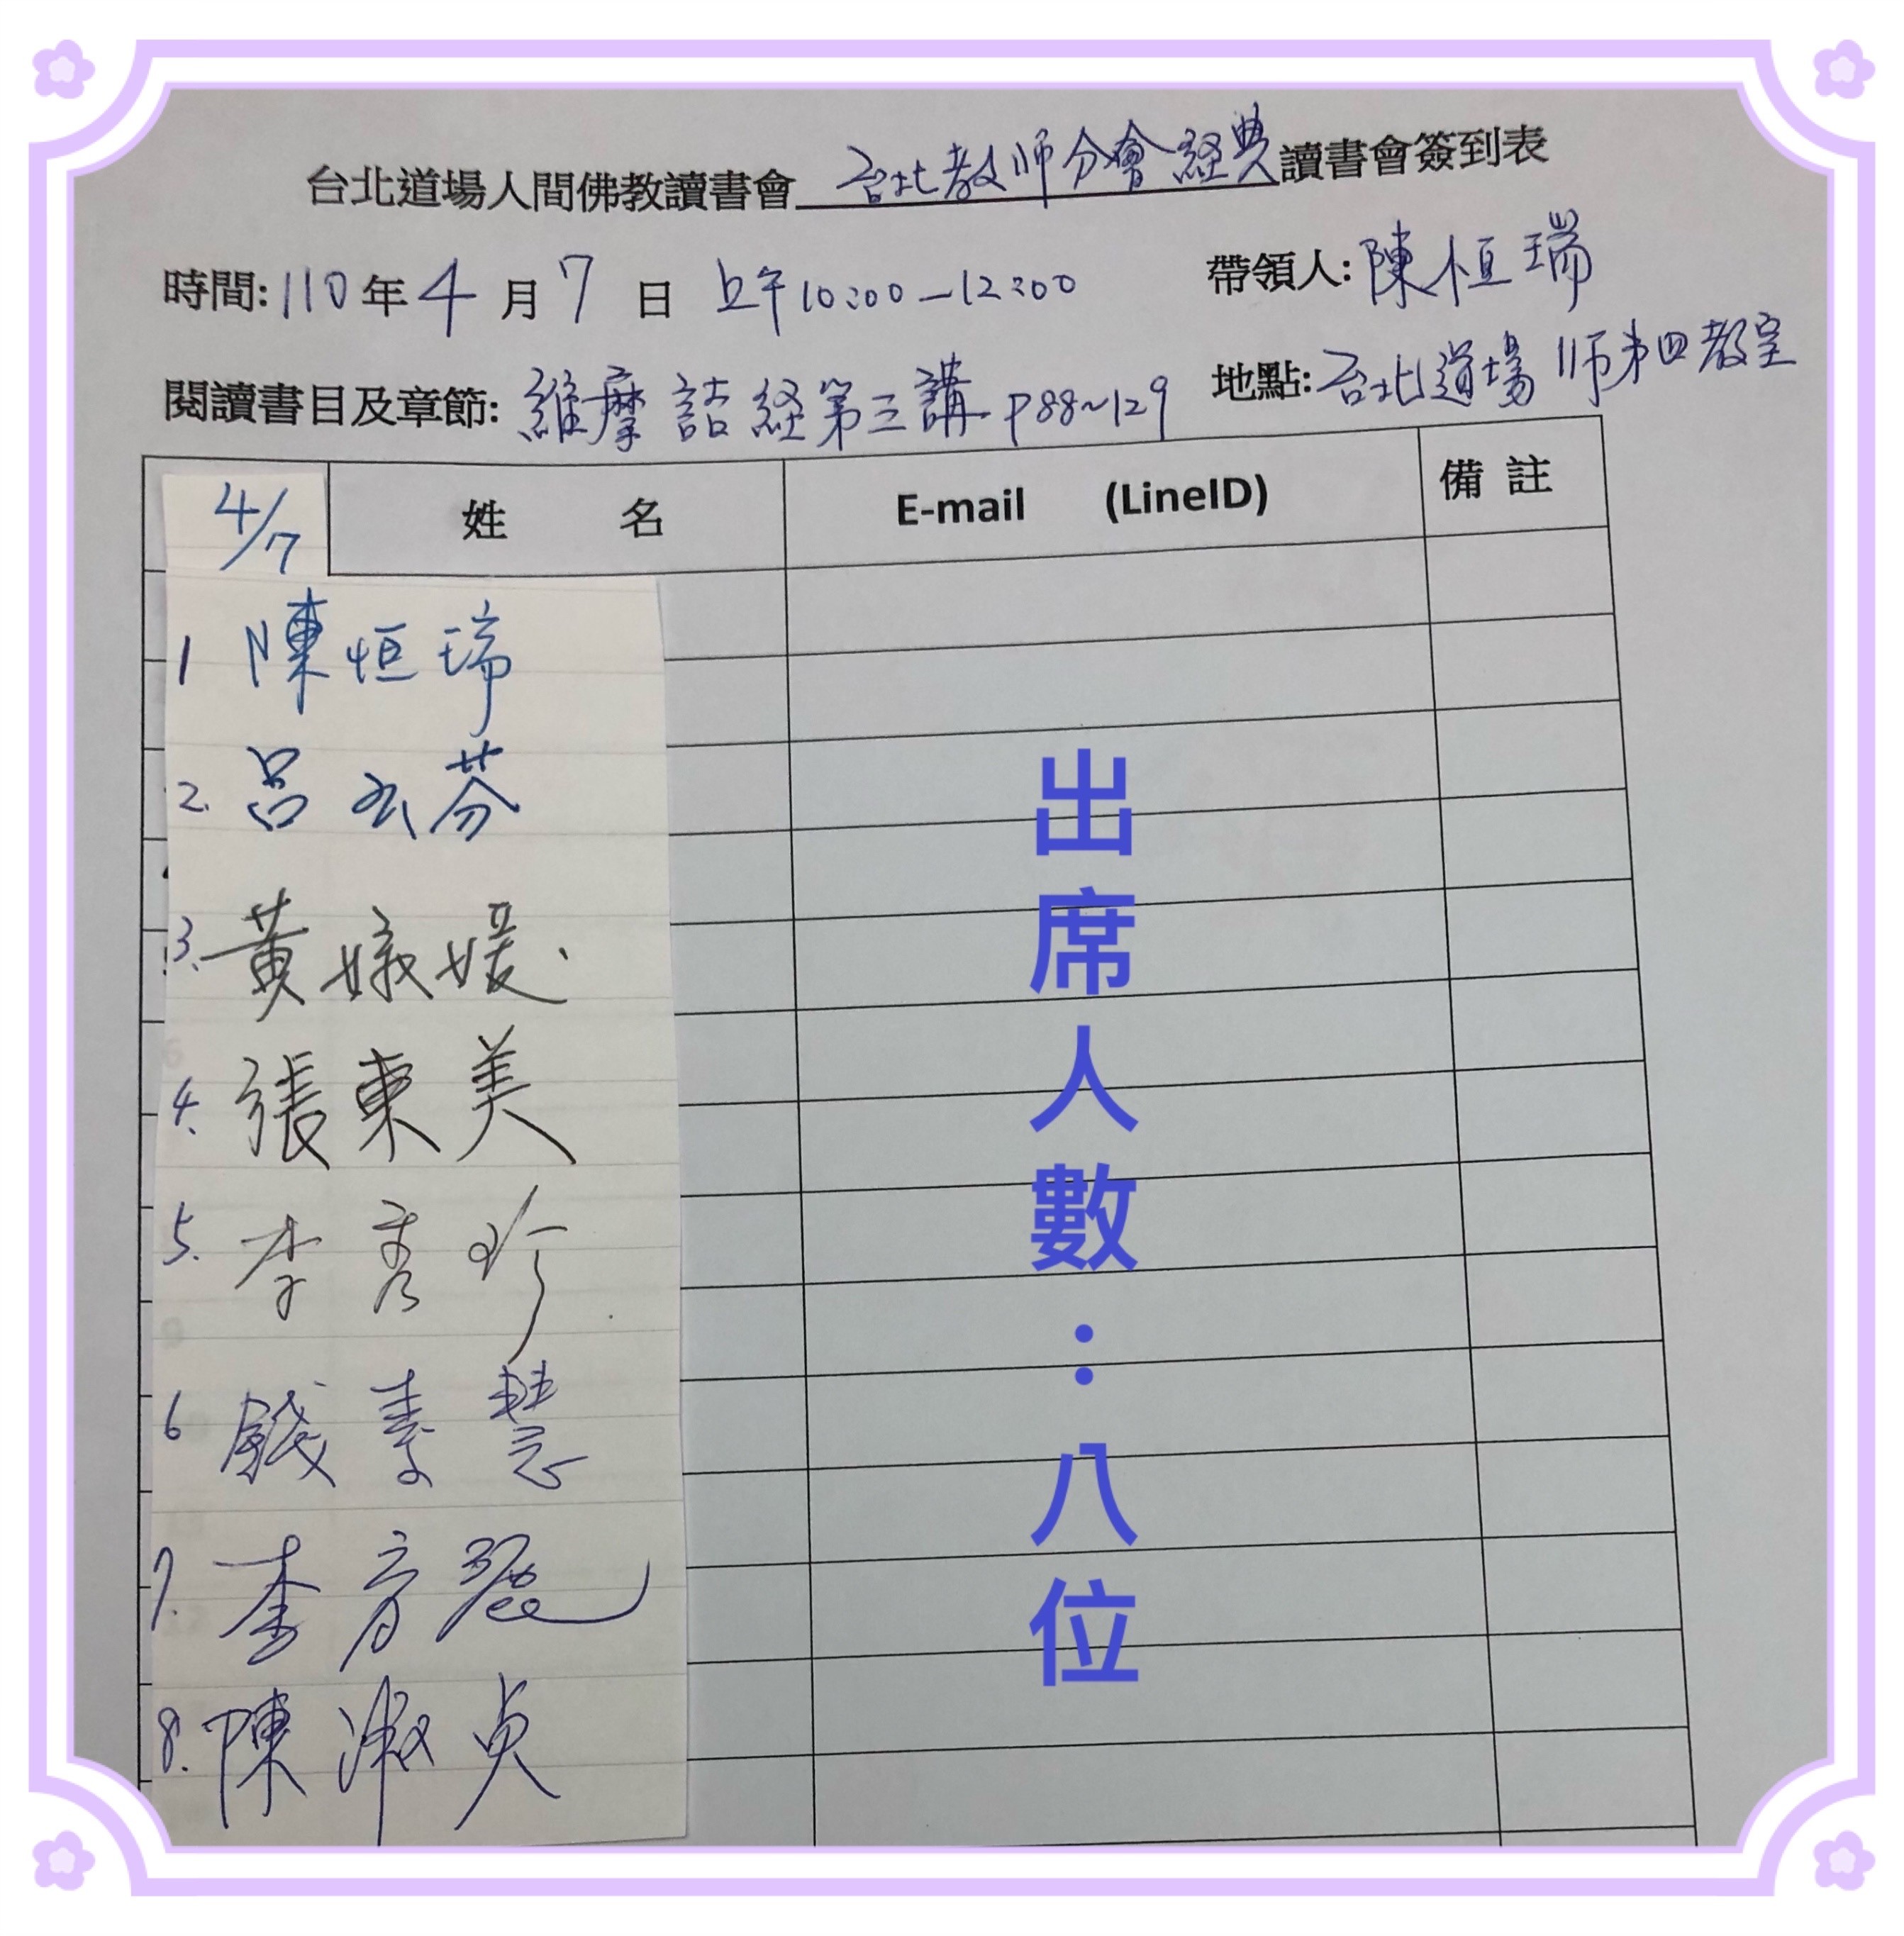 台北道場人間佛教讀書會 台北教師分會經典讀書會簽到表
時間:110年4月7日 上午10:00-12:00 帶領人:陳恒瑞
閱讀書目及章節:維摩詰經第三講P88~129 地點:台北道場11F第四教室
4/7 姓名 E-mail (LineID) 備註
1 陳恒瑞
2. 呂玄芬
3. 黃娥媛
4. 張東美
5. 李秀珍
6 錢素慧
7. 李芳
8. 陳淑貞
出席人數:八位